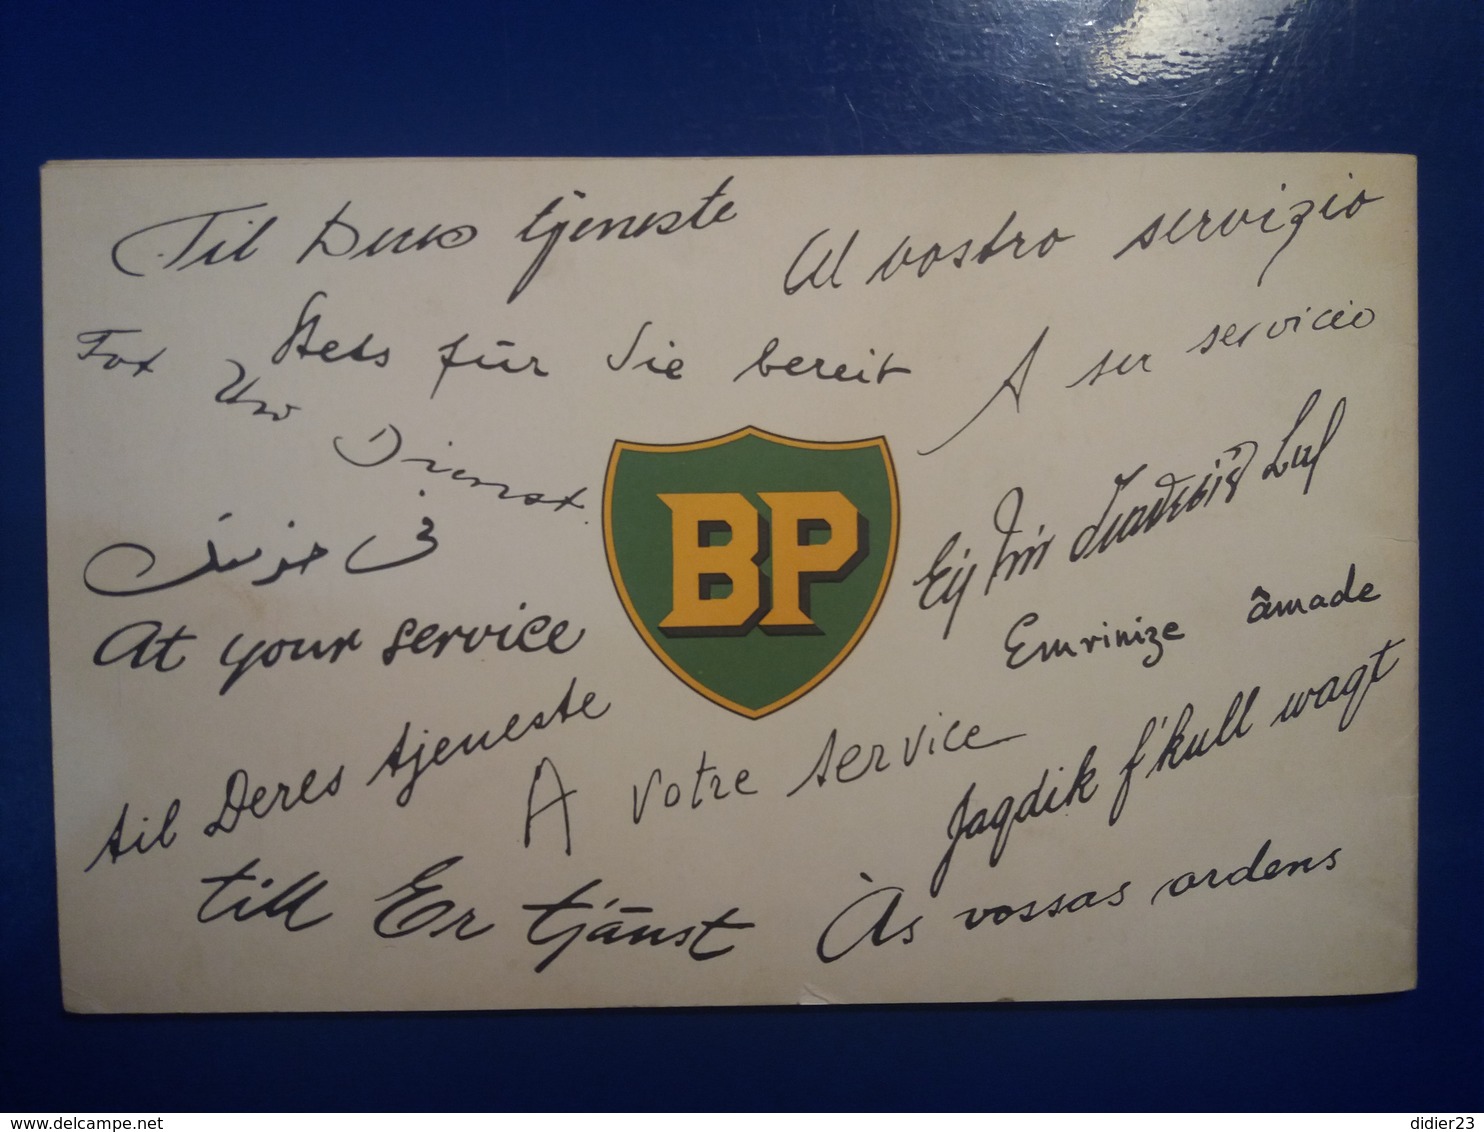 Til Deres tjeneste
Al vostro servizio
Stets für Sie bereit
A su servicio
Tot Uw Dienst.
في خدمتك
At your service
BP
Emrinize âmade
til Deres tjeneste
A votre service
Jagdik f'kull waqt
till Er tjänst
Às vossas ordens
delcampe.net
didier23